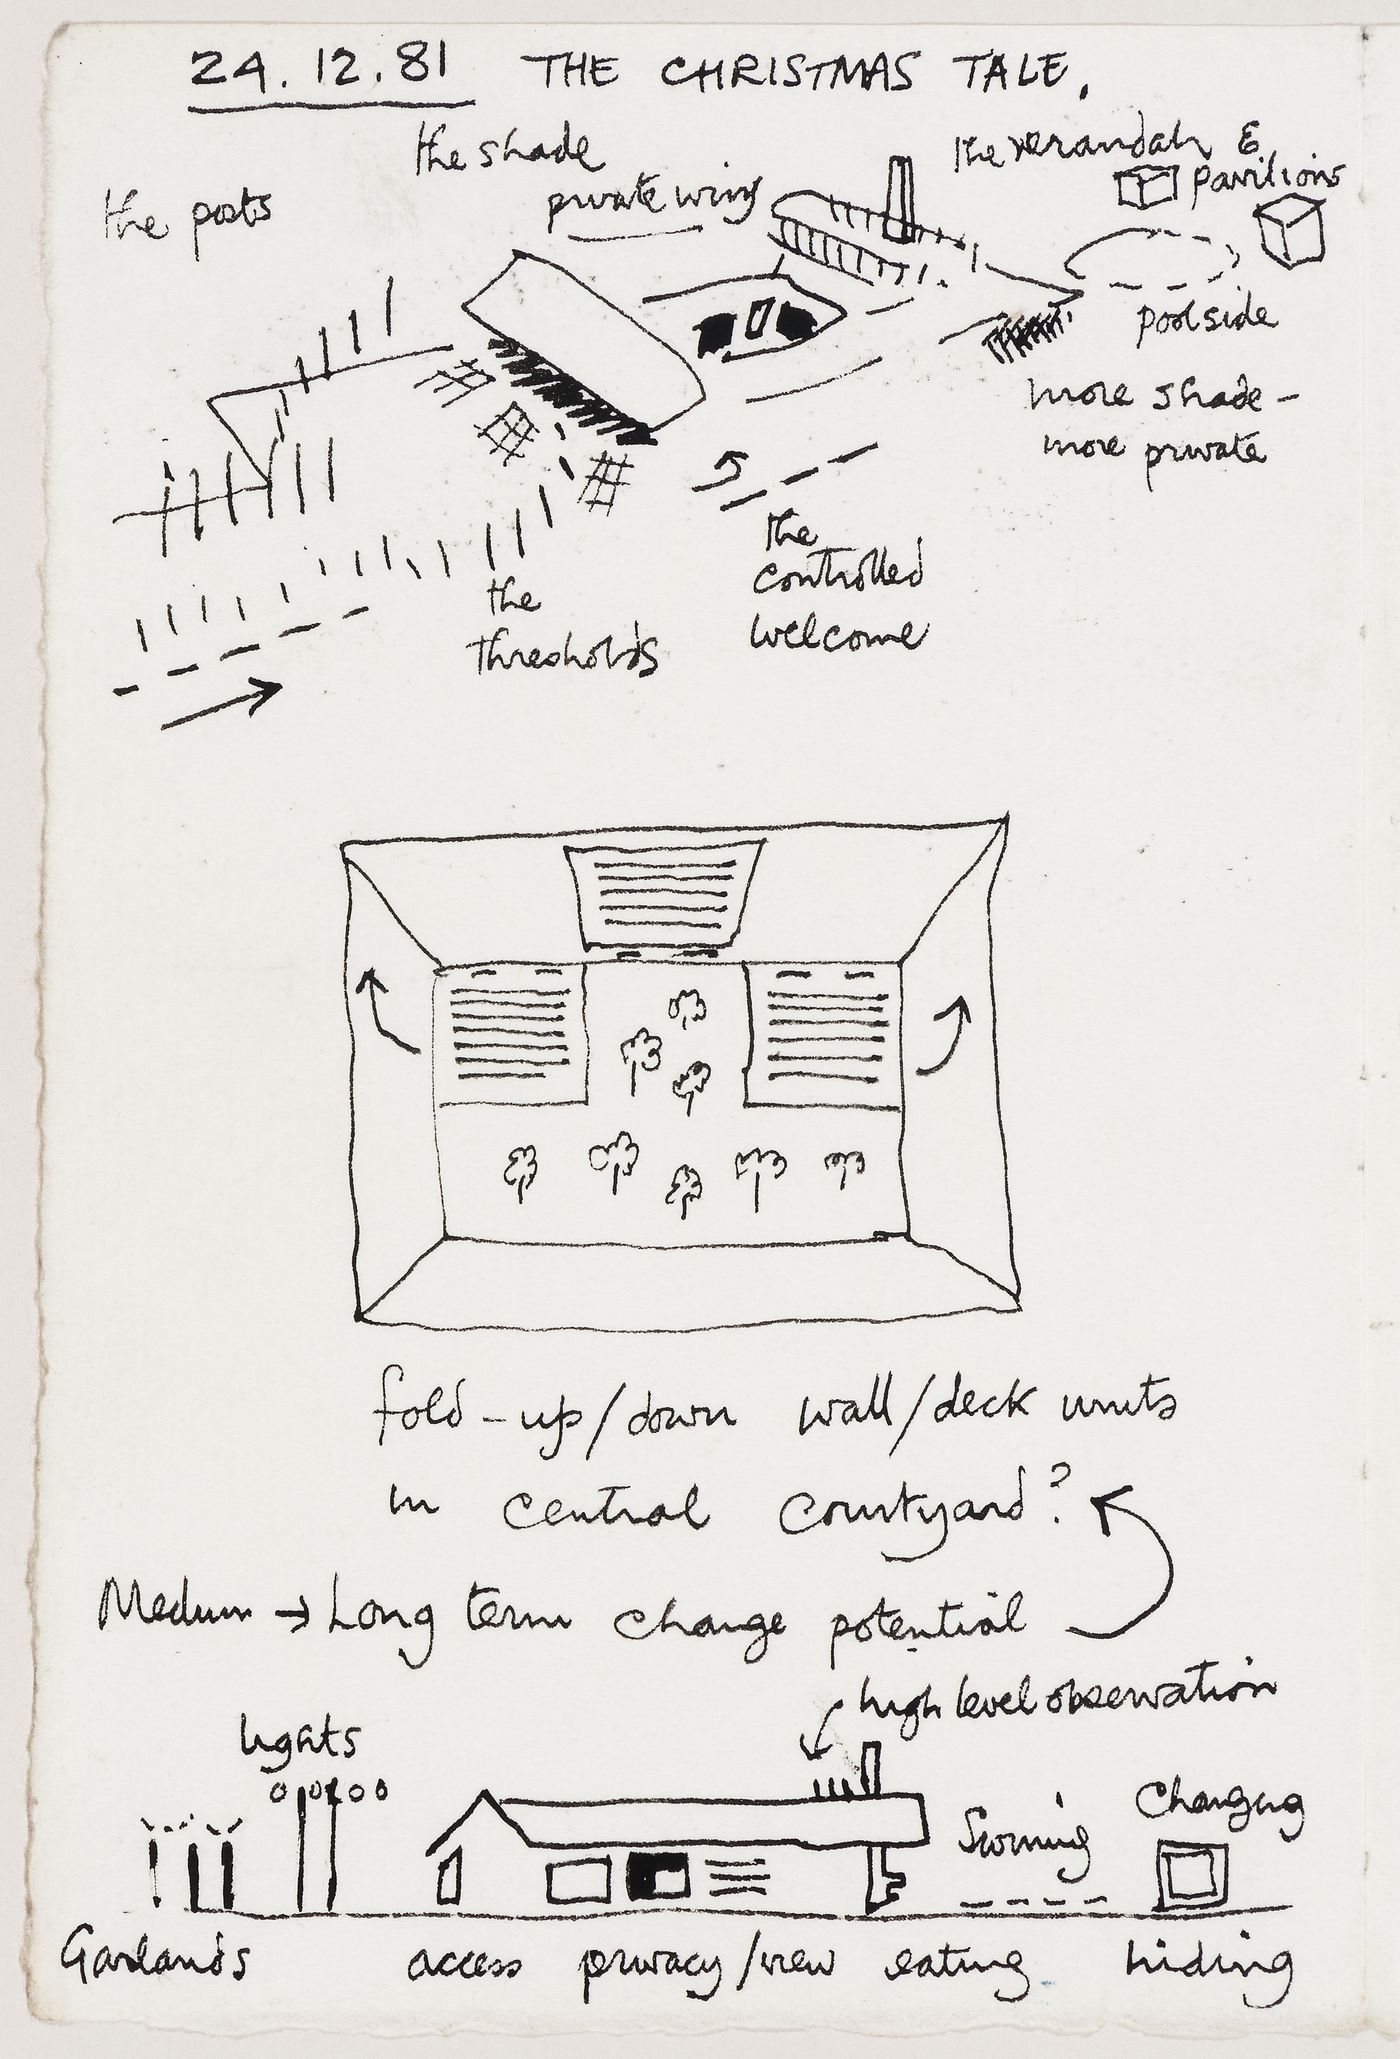 24.12.81 THE CHRISTMAS TALE.
the shade
the verandah &
pavilions
private wing
the posts
poolside
more shade -
more private
the
controlled
welcome
the
thresholds
fold-up/down wall/deck units
in central courtyard?
Medium → Long term change potential
high level observation
lights
Changing
Swimming
Garlands access privacy/view eating hiding